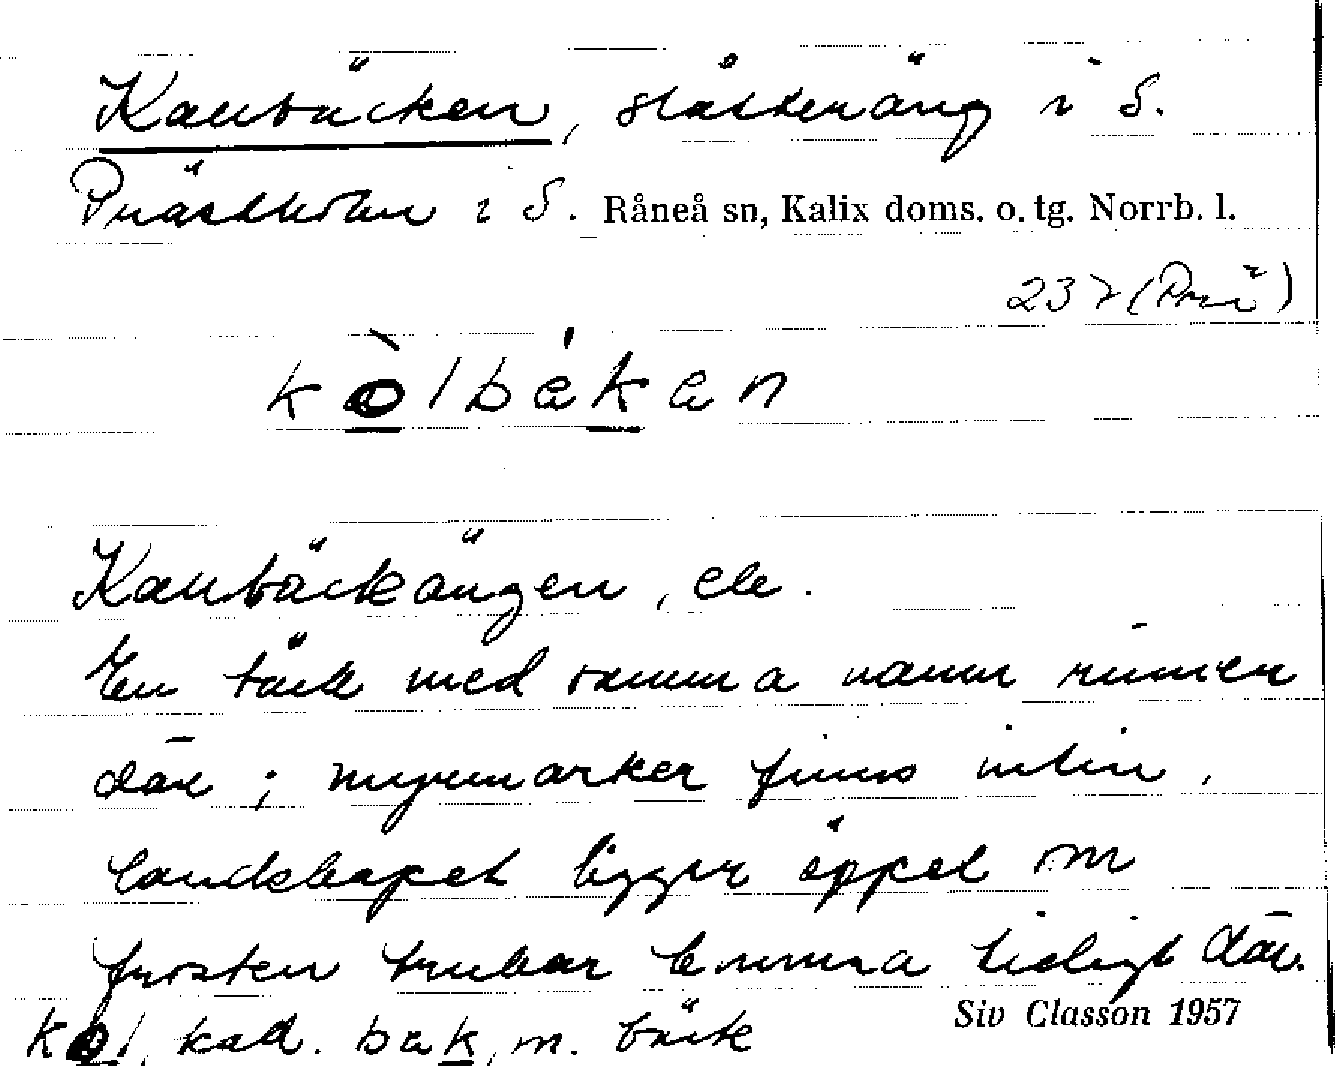 Kallbäcken, slåtteräng i S.
Prästholm i S. Råneå sn, Kalix doms. o. tg. Norrb. l.
237 (Prä)
kòlbákan
Kallbäckängen,
En bäck med samma namn rinner
där; myrmarker finns intill,
landskapet ligger öppet
frosten brukar komma tidigt där.
kol, kall. bak, m. bäck
Siv Classon 1957